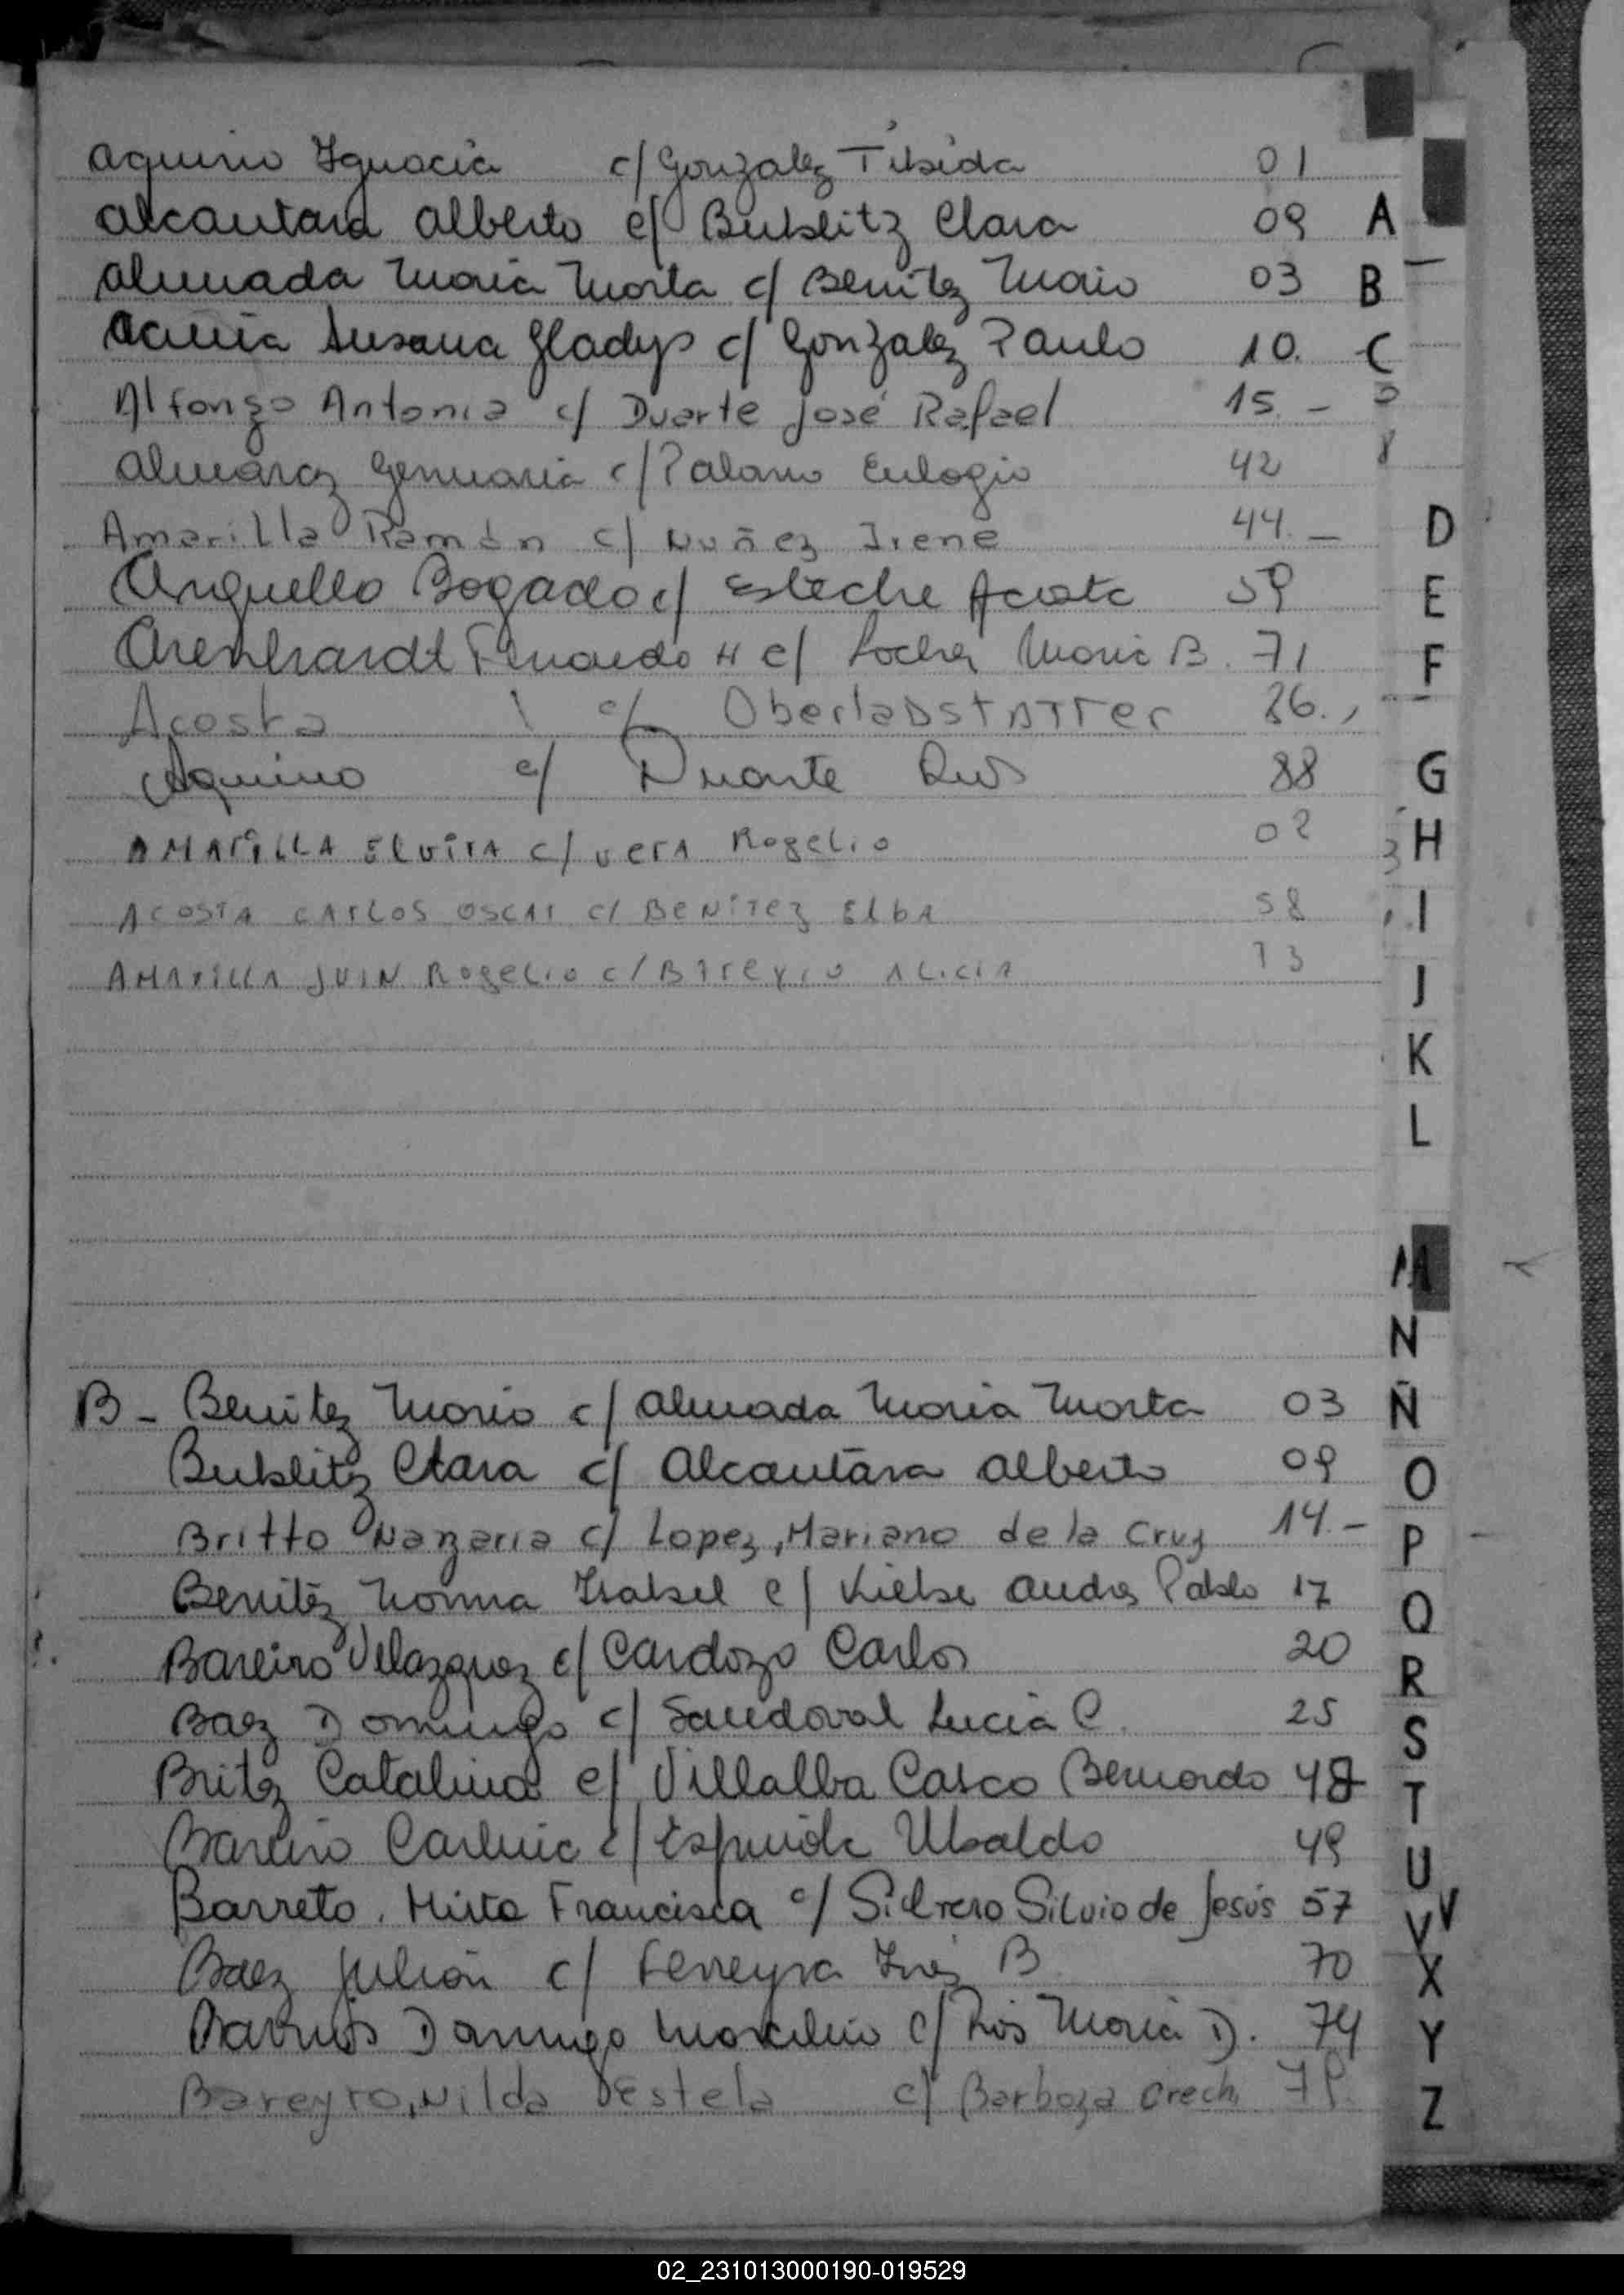 Aquino Ignacia c/ Gonzalez Tibida 01
Alcantara Alberto c/ Bublitz Clara 09 A
Almada Maria Marta c/ Benitez Mario 03 B
Acuña Susana Gladys c/ Gonzalez Paulo 10. C
Alfonzo Antonia c/ Duarte José Rafael 15.-
Almaraz Genuaria c/ Eulogio 42
Amarilla Ramón c/ Nuñez Irene 44.- D
Arguello Bogado c/ Esteche Acosta 59 E
Arenhardt Fernando H c/ Maria B. 71 F
Acosta c/ OberladstATTer 86.
Aquino c/ Duarte 88 G
AMArillA ElvirA c/ verA Rogelio 02 H
ACOSTA CArLOS OSCAr c/ BeNiTez ElbA 58 I
AMArillA JUAN Rogelio c/ BAreyro ALiciA 73 J
K
L
M
N
B - Benitez Mario c/ Almada Maria Marta 03 Ñ
Bublitz Clara c/ Alcantára Alberto 09 O
Britto Nazaria c/ Lopez, Mariano de la Cruz 14.- P
Benitez Norma Isabel c/ Andres Pablo 17 Q
Bareiro Velazquez c/ Cardozo Carlos 20 R
Baez Domingo c/ Sandoval Lucia C. 25 S
Britez Catalina c/ Villalba Casco Bernardo 48 T
Bareiro c/ Espinola Ubaldo 49 U
Barreto. Mirta Francisca c/ Silvero Silvio de Jesús 57 V V
Baez Julián c/ Ferreyra Inés B 70 X
Barrios Domingo Marcelino c/ Rios Maria D. 74 Y
Bareyro, Nilda Estela c/ Barboza Z
02_231013000190-019529